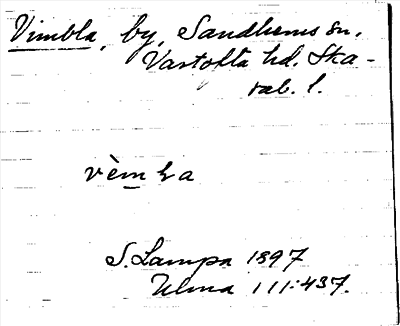 Vimbla, by, Sandhems sn,
Vartofta hd, Ska-
rab. l.
S. Lampa 1897
Ulma 111:437.